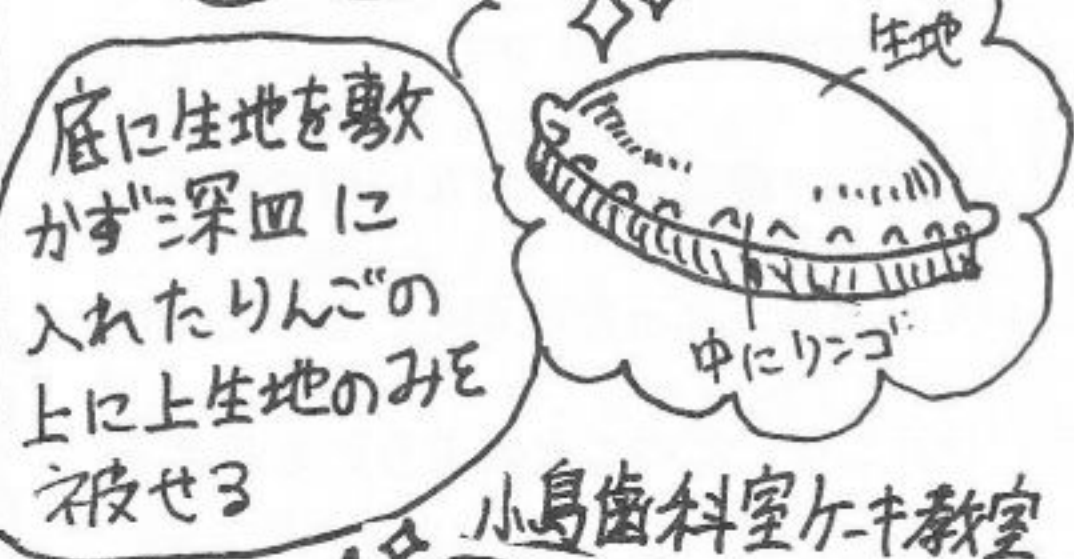 底に生地を敷
かず深皿に
入れたりんごの
上に上生地のみを
被せる
生地
中にリンゴ
小島歯科室ケーキ教室